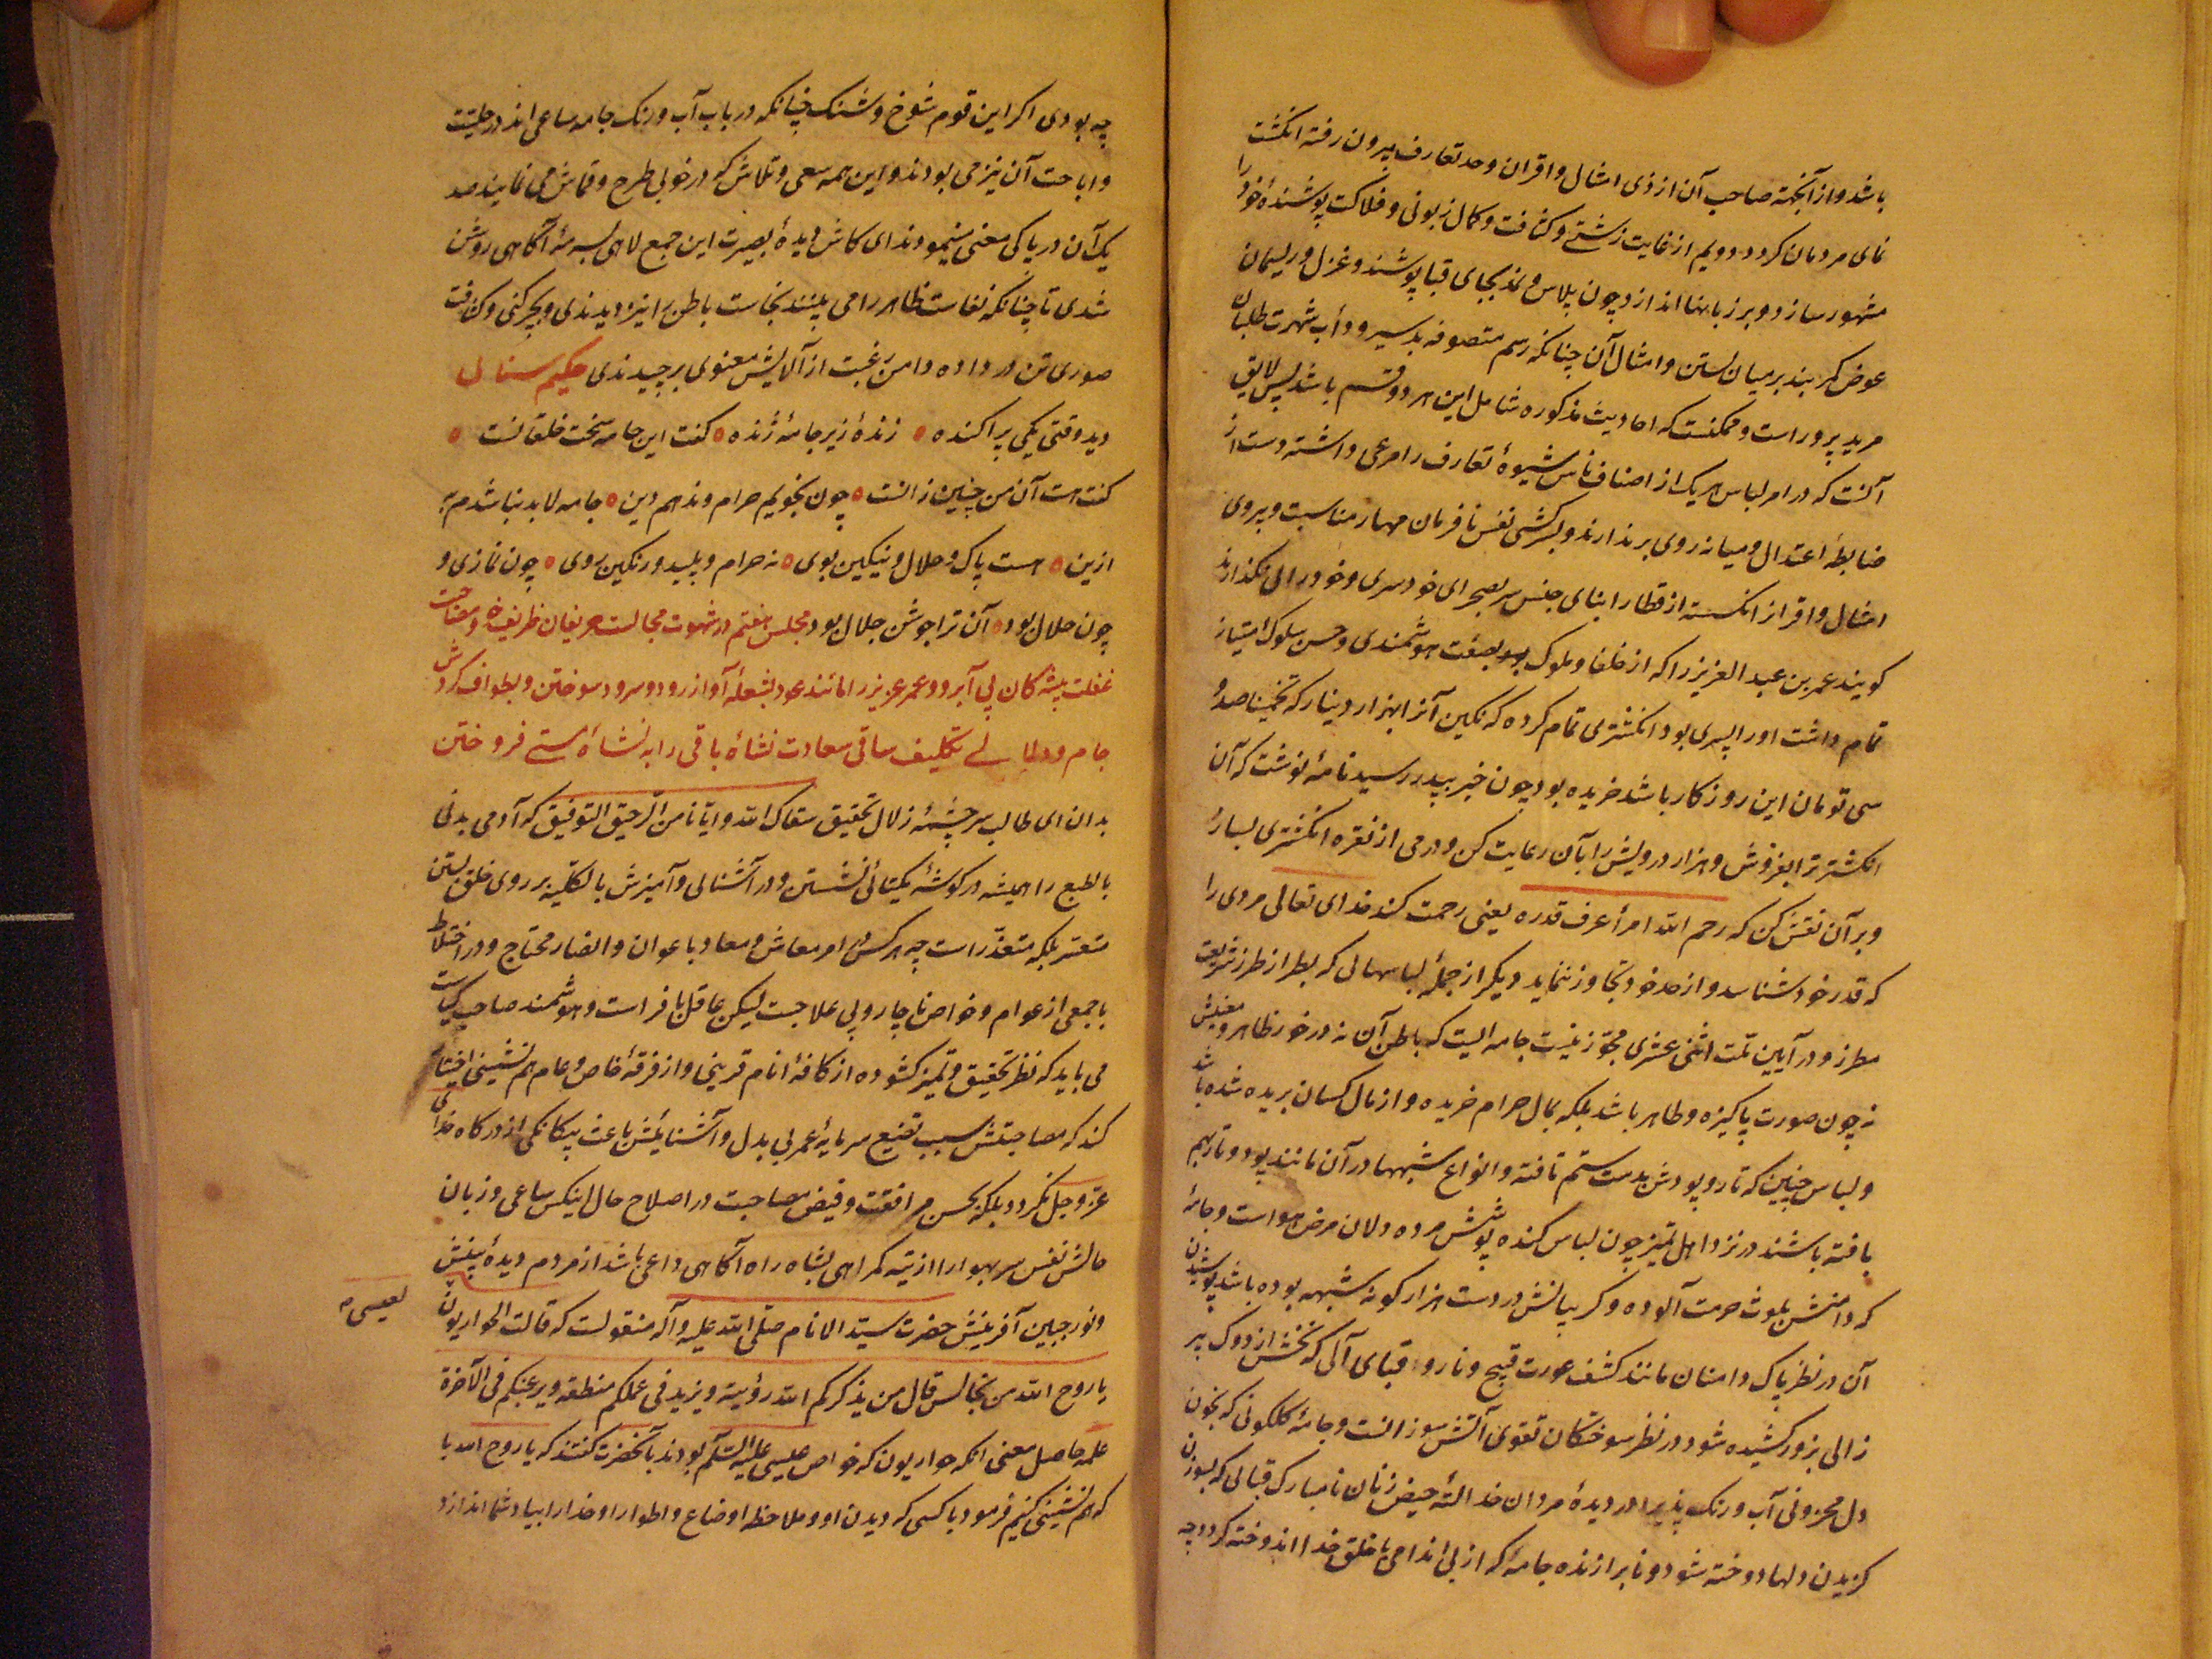 باشد و از آنجهة صاحب آن از ذی امثال و اقران و حد تعارف بیرون رفته انگشت
نمای مردمان کردد دویم از غایت زشتی و کثافت و کمال زبونی و فلاکت پوشندهٔ خود را
مشهور سازد و بر زبانها اندازد چون پلاس و نمد بجای قبا پوشند و غزل و ریسمان
عوض کمربند بر میان بستن و امثال آن چنانکه رسم متصوفه بد سیر و دأب شهرت طلبان
مرید پرور است و ممکنست که احادیث مذکوره شامل این هر دو قسم باشد پس لایق
آنست که در امر لباس هر یک از اصناف ناس شیوهٔ تعارف را مرعی داشته دست از
ضابطهٔ اعتدال و میانه روی برندارند و بسرکشی نفس نافرمان مهار مناسبت و پیروی
امثال و اقران کسسته از قطار ابنای جنس سر بصحرای خودسری و خودرائی نکذارند
کویند عمر بن عبد العزیز را که از خلفا و ملوک بود بصفت هوشمندی و حسن سلوک امتیاز
تمام داشت او را پسری بود انکشتری تمام کرده که نکین آنرا بهزار دینار که تخمینا صد و
سی تومان این روزکار باشد خریده بود چون خبر بپدر رسید نامهٔ نوشت که آن
انکشتر ترا بفروش و هزار درویش را بآن رعایت کن و درمی از نقره انکشتری بساز
و بر آن نقش کن که رحم الله امرأ عرف قدره یعنی رحمت کند خدای تعالی مردی را
که قدر خود شناسد و از حد خود تجاوز ننماید دیکر از جمله لباسهائی که بطراز طرز شریعت
مطرز و در آیین ملت اثنی عشری مجوز نیست جامه ایست که باطن آن نه در خور ظاهر و معنیش
نه چون صورت پاکیزه و طاهر باشد بلکه بمال حرام خریده و از مال کسان بریده شده باشد
و لباس چنین که تار و پودش بدست ستم تافته و انواع شبهها در آن مانند پود و تار بهم
بافته باشند در نزد اهل تمیز چون لباس کنده پوشش مرده دلان مرض هواست و جامهٔ
که دامنش بلوث حرمت آلوده و کریبانش در دست هزار کونه شبهه بوده باشد پوشیدن
آن در نظر پاک دامنان مانند کشف عورت قبیح و ناروا قبای آلی که نخش از دوک پیر
زالی بزور کشیده شود در نظر سوختکان تقوی آتش سوزانست و جامهٔ کلکونی که بخون
دل محزونی آب و رنک پذیرد در دیدهٔ مردان خدا لتهٔ حیض زنان نامبارک قبائی که بسوزن
کزیدن دلها دوخته شود و نابرازنده جامهٔ که از بی اندامی با خلق خدا اندوخته کردد چه
چه بودی اکر این قوم شوخ و شنک چنانکه در باب آب و رنک جامه ساعی اند در حلیت
و اباحت آن نیز می بودند و این همه سعی و تلاش که در خوبی طرح و قماش می نمایند صد
یک آن در پاکی معنی مینمودند ای کاش دیدهٔ بصیرت این جمع لاهی بسرمهٔ آگاهی روشن
شدی تا چنانکه نفاست ظاهر را می بینند نجاست باطن را نیز دیدندی و بچرکنی و کثافت
صوری تن در داده دامن رغبت از آلایش معنوی برچیدندی حکیم سنائی
دید وقتی یکی پراکنده زندهٔ زیر جامهٔ ژنده کفت این جامه سخت خلقانست
کفت هست آن من چنین زانست چون نجویم حرام و ندهم دین جامه لابد نباشدم به
ازین هست پاک و حلال و نیکین بوی نه حرام و پلید و رنکین روی چون نمازی و
چون حلال بود آن ترا جوشن جلال بود مجلس هفتم در شهوت مجالست حریفان ظریف و مصاحبت
غفلت پیشه کان بی آبرو و عمر عزیز را مانند عود بشعلهٔ آواز رود و سرود سوختن و بطواف کردش
جام و تکلیف ساقی سعادت نشاهٔ باقی را به نشاهٔ مستی فروختن
بدان ای طالب سرچشمهٔ زلال تحقیق سقاک الله و ایانا من الرحیق التوفیق که آدمی مدنی
بالطبع را همیشه در کوشهٔ یکتائی نشستن و در آشنائی و آمیزش بالکلیه بر روی خلق بستن
متعسر بلکه متعذر است چه هر کس در امر معاش و معاد باعوان و انصار محتاج و در اختلاط
با جمعی از عوام و خواص ناچار و بی علاجست لیکن عاقل با فراست و هوشمند صاحب کیاست
می باید که نظر تحقیق و تمیز کشوده از کافهٔ انام قرینی و از فرقهٔ خاص و عام هم نشینی اختیار
کند که مصاحبتش سبب تضییع سرمایهٔ عمر بی بدل و آشنائیش باعث بیکانکی از درکاه خدای
عز و جل نکردد بلکه بحسن مرافقت و فیض مصاحبت در اصلاح حال اینکس ساعی و زبان
حالش نفس سر بهوا را از تیه کمراهی بشاه راه آکاهی داعی باشد از مردم دیدهٔ بینش
و نور جبین آفرینش حضرت سید الانام صلی الله علیه و آله منقولست که قالت الحواریون
لعیسی
یا روح الله من نجالس قال من یذکرکم الله رؤیته و یزید فی عملکم منطقه و یرغبکم فی الآخرة
عمله حاصل معنی انکه حواریون که خواص عیسی علیه السلام بودند بآنحضرت کفتند که یا روح الله با
که هم نشینی کنیم فرمود با کسی که دیدن او و ملاحظهٔ اوضاع و اطوار او خدا را بیاد شما اندازد